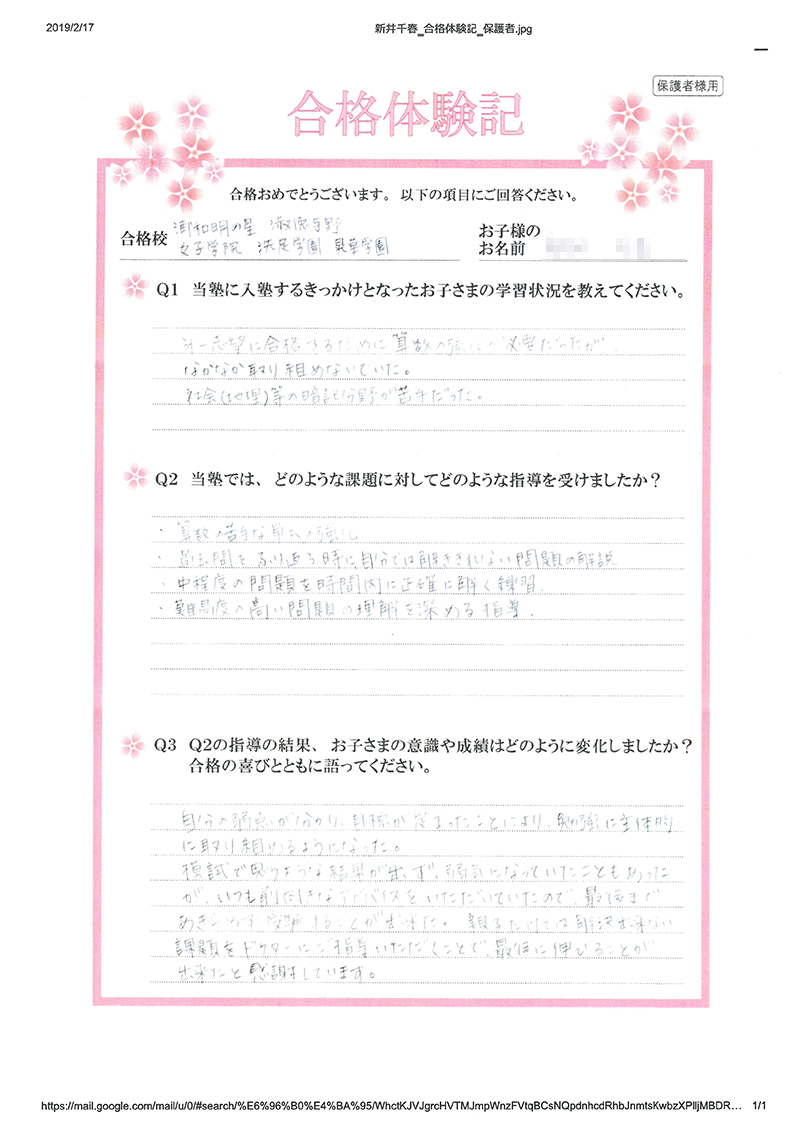 2019/2/17
新井千春_合格体験記_保護者.jpg
保護者様用
合格体験記
合格おめでとうございます。以下の項目にご回答ください。
合格校
浦和明の星 淑徳与野
女子学院 洗足学園 昌華学園
お子様の
お名前
Q1 当塾に入塾するきっかけとなったお子さまの学習状況を教えてください。
第一志望に合格するために算数の強化が必要だったが、
なかなか取り組めないでいた。
社会(地理)等の暗記分野が苦手だった。
Q2 当塾では、どのような課題に対してどのような指導を受けましたか?
・算数の苦手な単元の強化
・過去問をふり返る時に、自分では解ききれない問題の解説
・中程度の問題を時間内に正確に解く練習.
・難易度の高い問題の理解を深める指導.
Q3 Q2の指導の結果、お子さまの意識や成績はどのように変化しましたか?
合格の喜びとともに語ってください。
自分の弱点が分かり、目標が定まったことにより、勉強に主体的
に取り組めるようになった。
模試で思うような結果が出ず、弱気になっていたこともあった
が、いつも前向きなアドバイスをいただいていたので、最後まで
あきらめず受験することが出来た。親子だけでは解決出来ない
課題をドクターにご指導いただくことで、最後に伸びることが
出来たと感謝しています。
https://mail.google.com/mail/u/0/#search/%E6%96%B0%E4%BA%95/WhctKJVJgrcHVTMJmpWnzFVtqBCsNQpdnhcdRhbJnmtsKwbzXPlljMBDR...
1/1